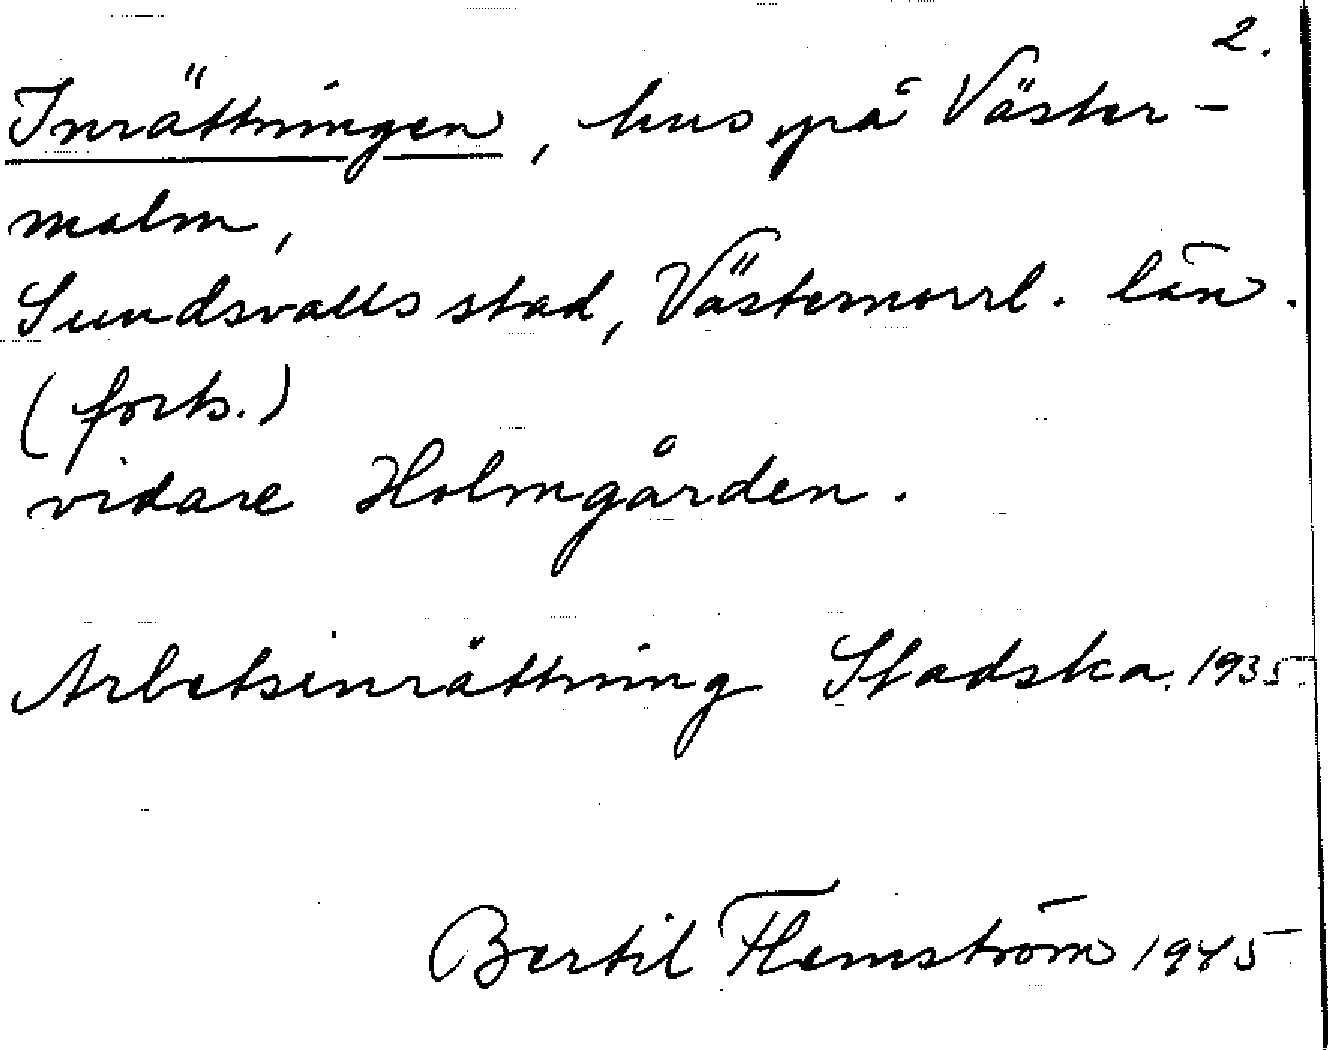 2.
Inrättningen, hus på Väster-
malm,
Sundsvalls stad, Västernorrl. län.
(forts.)
vidare Holmgården.
Arbetsinrättning Stadska. 1935
Bertil Flemström 1945